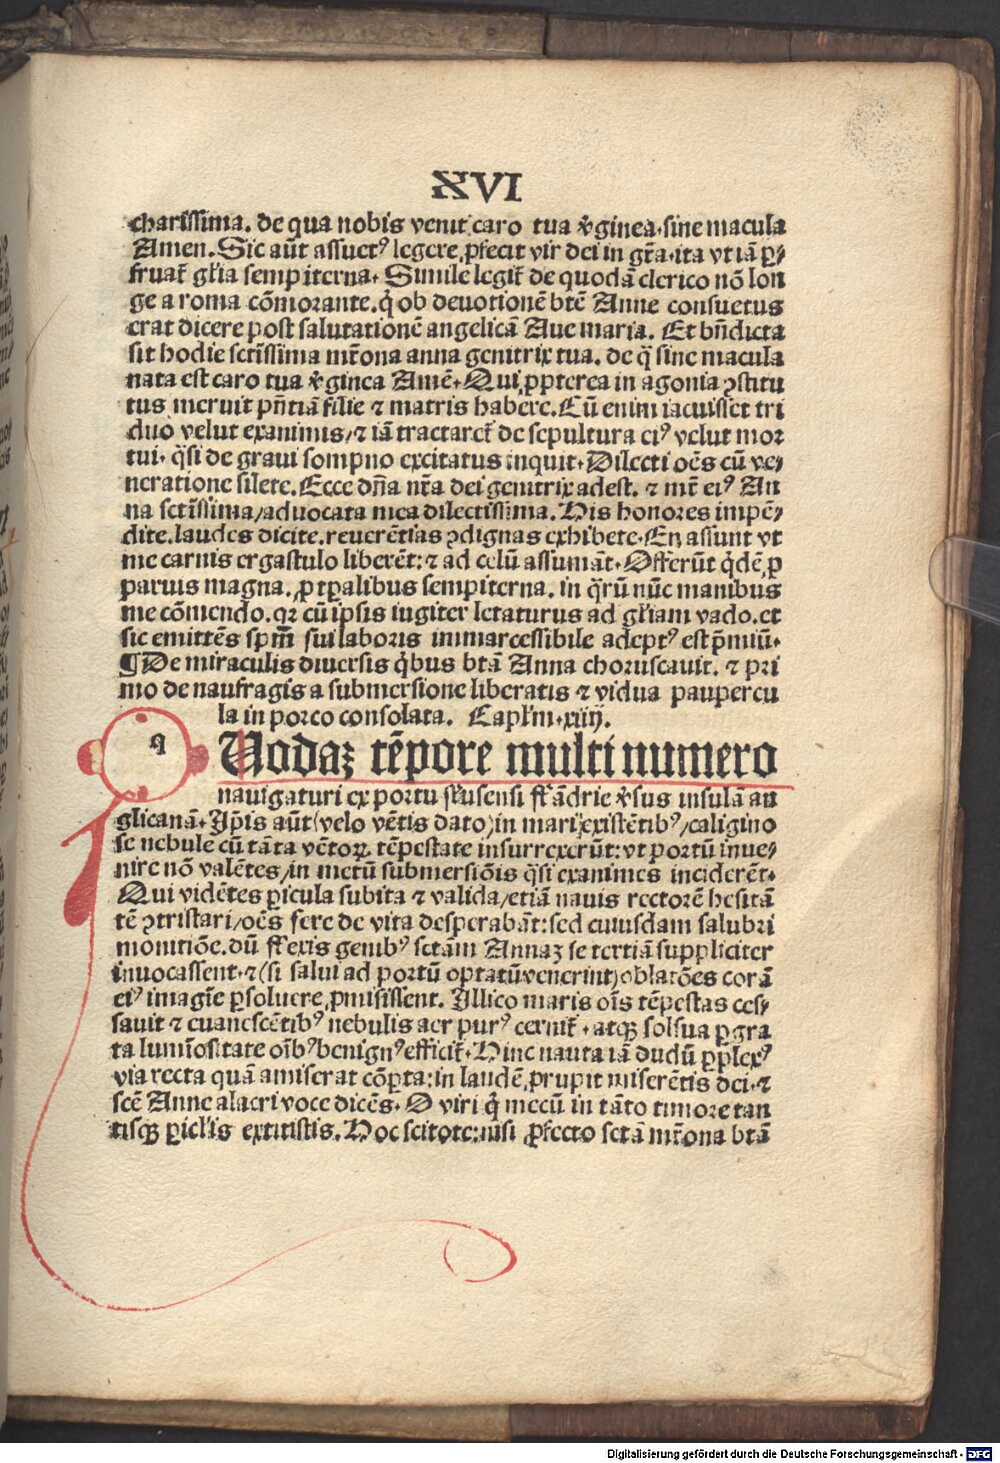 XVI
charissima. de qua nobis venit caro tua v̾ginea. sine macula
Amen. Sic aūt assuetꝰ legere, ꝓfecit vir dei in gr̄a. ita vt iā ꝑ⸗
fruat᷑ gl̄ia sempiterna. Simile legit᷑ de quodā clerico nō lon
ge a roma cōmorante. q̇ ob deuotionē btē Anne consuetus
erat dicere post salutationē angelicā Aue maria. Et bn̄dicta
sit hodie sctīssima mr̄ona anna genitrix tua. de q̄ sine macula
nata est caro tua v̾ginea Amē. Qui ꝓpterea in agonia ꝯstitu
tus meruit pn̄tiā filie ⁊ matris habere. Cū enim iacuisset tri
duo velut exanimis/ ⁊ iā tractaret᷑ de sepultura eiꝰ velut mor
tui. q̇si de graui sompno excitatus inquit. Dilecti oēs cū ve⸗
neratione silete. Ecce dn̄a nr̄a dei genitrix adest. ⁊ mr̄ eiꝰ An
na sctīssima/ aduocata mea dilectissima. His honores impē⸗
dite. laudes dicite. reuerētias ꝯdignas exhibete. En assunt vt
me carnis ergastulo liberēt: ⁊ ad celū assumāt. Offerūt q̇dē ꝓ
paruis magna. ꝓ tꝑalibus sempiterna. in q̇rū nūc manibus
me cōmendo. qꝛ cū ipsis iugiter letaturus ad gl̄iam vado. et
sic emittēs spm̄ sui laboris immarcessibile adeptꝰ est p̄miū.
¶ De miraculis diuersis q̇bus btā Anna choruscauit. ⁊ pri
mo de naufragis a submersione liberatis ⁊ vidua paupercu
la in porco consolata. Capl̄m. xiiij.
q
UOdaꝫ tēpore multi numero
nauigaturi ex portu slusensi fl̄ādrie v̾sus insulā an
glicanā. Ip̄is aūt (velo vētis dato) in mari existētibꝰ/ caligino
se nebule cū tāta vētoꝝ tēpestate insurrexerūt: vt portū inue⸗
nire nō valētes/ in metū submersiōis q̇si exanimes inciderēt.
Qui vidētes ꝑicula subita ⁊ valida/ etiā nauis rectorē hesitā
tē ꝯtristari/ oēs fere de vita desperabāt: sed cuiusdam salubri
monitiōe. dū flexis genibꝰ sctām Annaꝫ se tertiā suppliciter
inuocassent. ⁊ (si salui ad portū optatū venerint) oblatōes corā
eiꝰ imagīe ꝑsoluere, ꝓmisissent. Illico maris oīs tēpestas ces⸗
sauit ⁊ euanescētibꝰ nebulis aer purꝰ cernit᷑. atqꝫ sol sua ꝑgra
ta lumīositate oībꝰ benignꝰ efficit᷑. Hinc nauta iā dudū ꝑplexꝰ
via recta quā amiserat cōꝑta: in laudē ꝓrupit miserētis dei. ⁊
scē Anne alacri voce dicēs. O viri q̇ mecū in tāto timore tan
tisqꝫ ꝑicl̄is extitistis. Hoc scitote: nisi ꝓfecto sctā mr̄ona btā
Digitalisierung gefördert durch die Deutsche Forschungsgemeinschaft - DFG